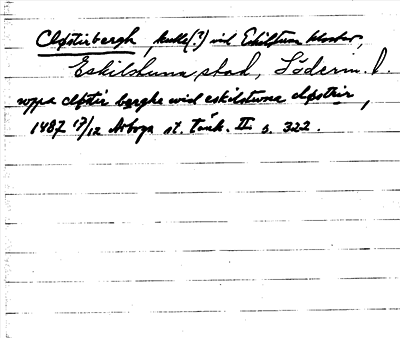 Cløstirbergh, kulle(?) vid Eskilstuna kloster,
Eskilstuna stad, Söderm. l.
uppa cløstir bergha wid eskilstwna cløstrir,
1487 17/12 Arboga st. Tänk. II s. 322.